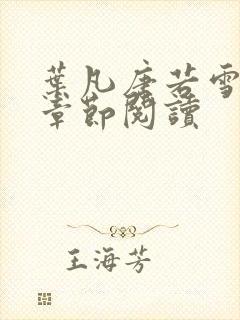 葉凡唐若雪
章節閱讀
王海芳